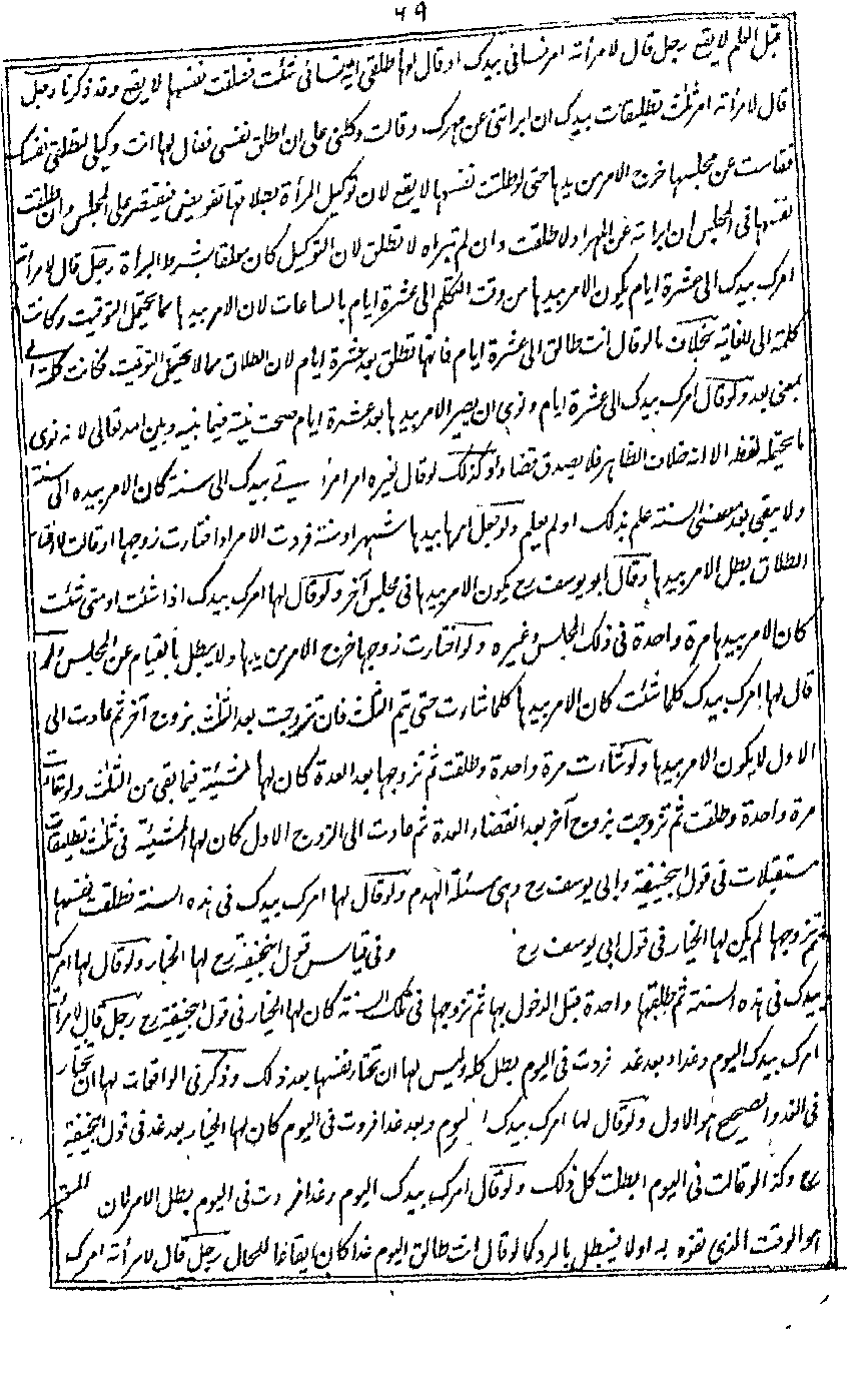 ۴۹
قبل العلم لا يقع رجل قال لامرأته امر نسائي بيدك او قال لها طلقي اي نسائي شئت فطلقت نفسها لا يقع وقد ذكرنا رجل
قال لامرأته امر ثلث تطليقات بيدك ان ابرأتني عن مهرك وقالت وكلني على ان اطلق نفسي فقال لها انت وكيلي لتطلقي نفسك
فقامت عن مجلسها خرج الامر من يدها حتى لو طلقت نفسها لا يقع لان توكيل المرأة بطلاقها تفويض فيقتصر على المجلس وان طلقت
نفسها في المجلس ان ابرأته عن المهر اولا طلقت وان لم تبرأه لا تطلق لان التوكيل كان معلقا بشرط البراة رجل قال لامرأته
امرك بيدك الى عشرة ايام يكون الامر بيدها من وقت التكلم الى عشرة ايام بالساعات لان الامر بيدها مما يحتمل التوقيت وكانت
كلمة الى للغاية بخلاف ما لو قال انت طالق الى عشرة ايام فانها تطلق بعد عشرة ايام لان الطلاق مما لا يحتمل التوقيت فكانت كلمة الى
بمعنى بعد ولو قال امرك بيدك الى عشرة ايام ونوى ان يصير الامر بيدها بعد عشرة ايام صحت نيته فيما بينه وبين الله تعالى لانه نوى
ما يحتمله لفظه الا انه خلاف الظاهر فلا يصدق قضاء وكذلك لو قال لغيره امر امرأتي بيدك الى سنة كان الامر بيده الى سنة
ولا يبقى بعد مضي السنة علم بذلك او لم يعلم ولو جعل امرها بيدها شهرا او سنة فردت الامر او اختارت زوجها او قالت لا اختار
الطلاق بطل الامر بيدها وقال ابو يوسف رح يكون الامر بيدها في مجلس آخر ولو قال لها امرك بيدك اذا شئت او متى شئت
كان الامر بيدها مرة واحدة في ذلك المجلس وغيره ولو اختارت زوجها خرج الامر من يدها ولا يبطل بالقيام عن المجلس ولو
قال لها امرك بيدك كلما شئت كان الامر بيدها كلما شاءت حتى يتم الثلث فان تزوجت بعد الثلث بزوج آخر ثم عادت الى
الاول لا يكون الامر بيدها ولو شاءت مرة واحدة وطلقت ثم تزوجها بعد العدة كان لها المشيئة فيما بقي من الثلث ولو شاءت
مرة واحدة وطلقت ثم تزوجت بزوج آخر بعد انقضاء العدة ثم عادت الى الزوج الاول كان لها المشيئة في ثلث تطليقات
مستقبلات في قول ابيحنيفة وابي يوسف رح وهي مسئلة الهدم ولو قال لها امرك بيدك في هذه السنة فطلقت نفسها
ثم تزوجها لم يكن لها الخيار في قول ابي يوسف رح وفي قياس قول ابيحنيفة رح لها الخيار ولو قال لها امرك
بيدك في هذه السنة ثم طلقها واحدة قبل الدخول بها ثم تزوجها في تلك السنة كان لها الخيار في قول ابيحنيفة رح رجل قال لامرأته
امرك بيدك اليوم وغدا وبعد غد فردت في اليوم بطل كله وليس لها ان تختار نفسها بعد ذلك وذكر في الواقعات لها ان تختار
في الغد والصحيح هو الاول ولو قال لها امرك بيدك اليوم وبعد غد افردت في اليوم كان لها الخيار بعد غد في قول ابيحنيفة
رح وكذا لو قالت في اليوم ابطلت كل ذلك ولو قال امرك بيدك اليوم وغدا فردت في اليوم بطل الامر لان
هو الوقت الذي تفوه به اولا فيبطل بالرد كما لو قال انت طالق اليوم غدا كان ايقاعا للحال رجل قال لامرأته امرك